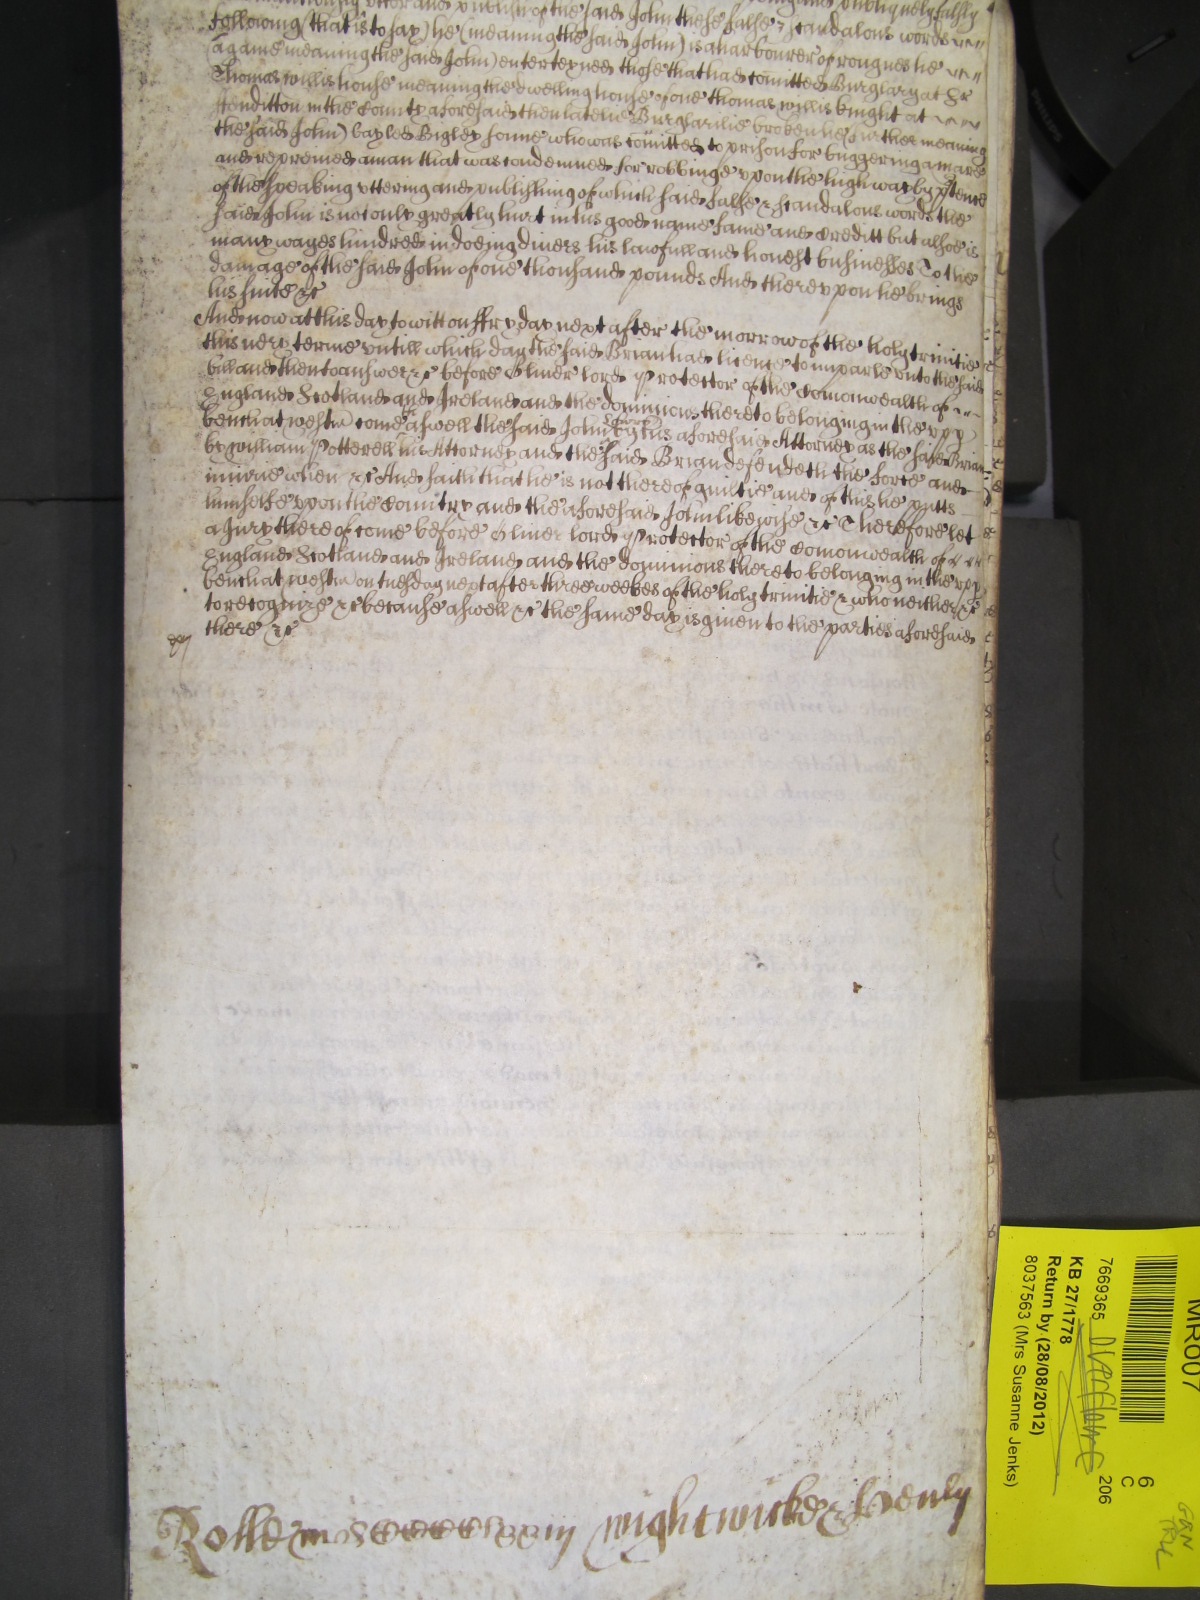 utter and publish of the said John these false & scandalous words
following (that is to say) he (meaning the said John) is a harbourer of rougues he
(againe meaning the said John) enterteyned those that had comitted Burglary at Sr
Thomas Willis house meaning the dwelling house of one Thomas Willis knight at
ffenditton in the County aforesaid then latelie Burglarilie broken he further meaning
the said John) bayled Bigley fame who was comitted to prison for buggering a mare
and repreived a man that was condemned for robbinge upon the high way by
of the speaking uttering and publishing of which said false & scandalous words the
said John is not only greatly hurt in his good name fame and Creditt but alsoe is
many wayes hindred in doeing divers his lawfull and honest businesses To the
damage of the said John of one thousand pounds And thereupon he brings
his suite &c
And now at this day to witt on ffryday next after the morrow of the holy trinitie
this next terme untill which day the said Brian had licence to imparle unto the said
bill and then to answer &c before Oliver lord Protector of the Comonwealth of
England Scotland and Ireland and the dominions thereto belonging in the upp
bench at Westm come aswell the said John by his aforesaid Attorney as the said Brian
by William Potterell his Attorney and the said Brian defendeth the force and
iniurie when &c And saith that he is not thereof guiltie and of this he putts
himselfe upon the Country and the aforesaid John likewise &c Therefore let
a Jury thereof come before Oliver lord Protector of the Comonwealth of
England Scotland and Ireland and the dominions thereto belonging in the upp
bench at Westm on tuesday next after three weekes of the holy trinitie & who neither &c
to recognize &c because aswell &c the same day is given to the parties aforesaid
there &c
Rolle Wightwicke & Henly
MR007
6
C
206
7669365
KB 27/1778
Return by (28/08/2012)
8037563 (Mrs Susanne Jenks)
PHILIPS